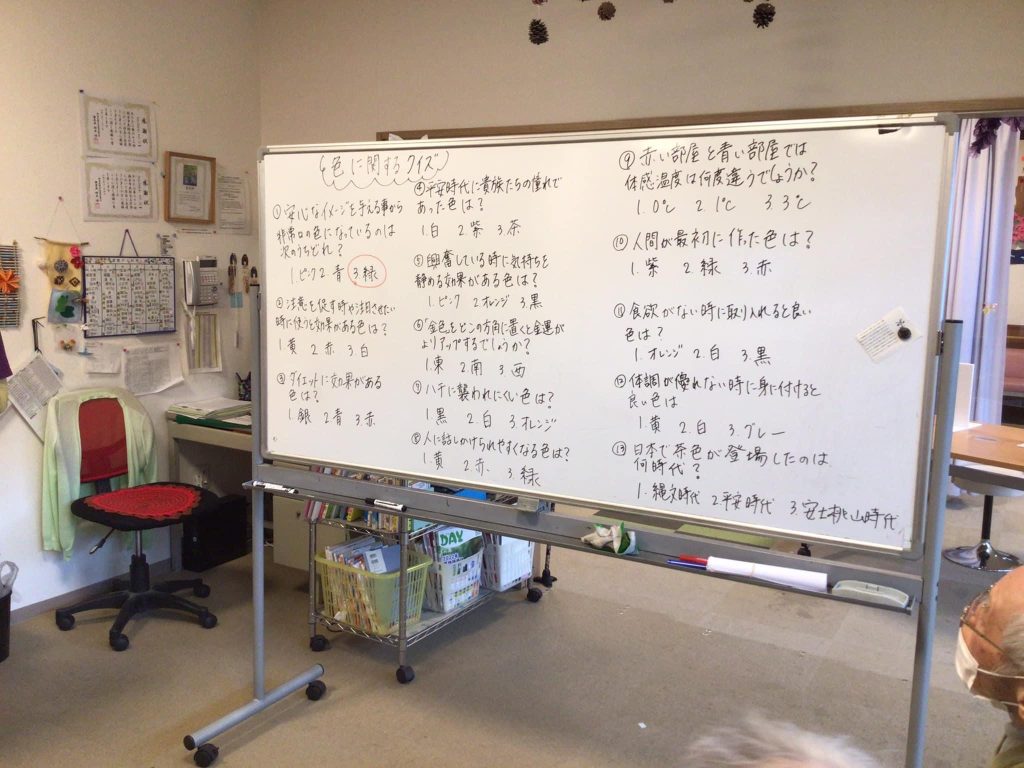 色に関するクイズ
①安心なイメージを与える事から
非常口の色になっているのは
次のうちどれ？
1.ピンク 2.青 3.緑
②注意を促す時や注目させたい
時に使うと効果がある色は？
1.黄 2.赤 3.白
③ダイエットに効果がある
色は？
1.銀 2.青 3.赤
④平安時代に貴族たちの憧れで
あった色は？
1.白 2.紫 3.茶
⑤興奮している時に気持ちを
静める効果がある色は？
1.ピンク 2.オレンジ 3.黒
⑥「金色をどこの方角に置くと金運が
よりアップするでしょうか？
1.東 2.南 3.西
⑦ハチに襲われにくい色は？
1.黒 2.白 3.オレンジ
⑧人に話しかけられやすくなる色は？
1.黄 2.赤 3.緑
⑨赤い部屋と青い部屋では
体感温度は何度違うでしょうか？
1.0℃ 2.1℃ 3.3℃
⑩人間が最初に作った色は？
1.紫 2.緑 3.赤
⑪食欲がない時に取り入れると良い
色は？
1.オレンジ 2.白 3.黒
⑫体調が優れない時に身に付けると
良い色は
1.黄 2.白 3.グレー
⑬日本で茶色が登場したのは
何時代？
1.縄文時代 2.平安時代 3.安土桃山時代
感謝状
感謝状
DAY